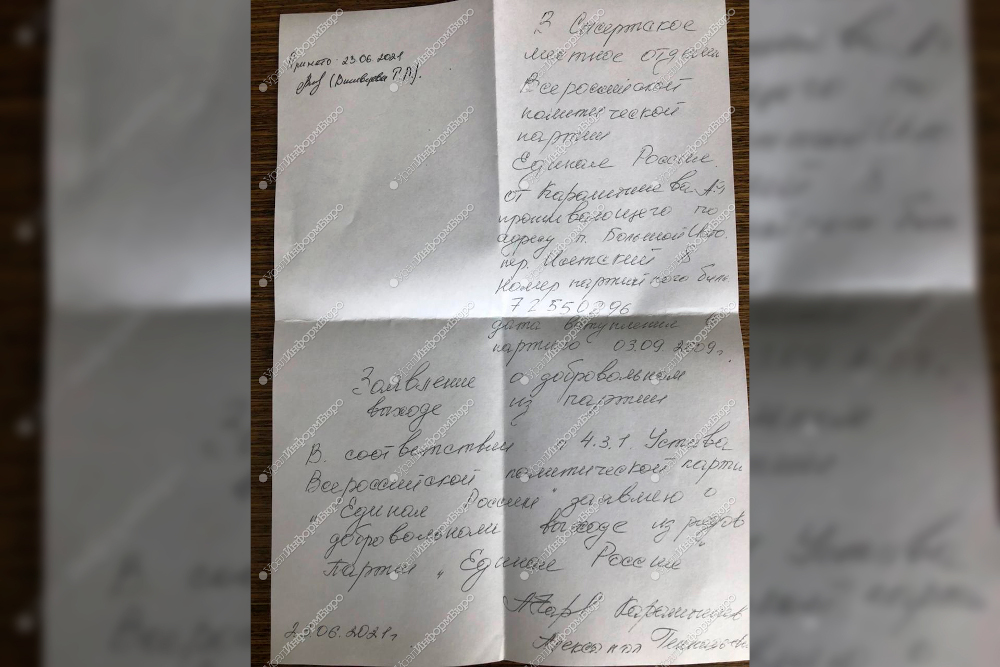 Принято 23.06.2021
В Сысертское
местное отделен
Всероссийской
политической
партии
Единая Россия.
от
проживающего по
адресу п. Большой Исток.
пер. Истокский 8
Номер партийного бил.
72550896
дата вступления в
партию 03.09.2009г.
Заявление о добровольном
выходе из партии
В соответствии 4.3.1 Устава
Всероссийской политической парти
"Единая Россия" заявляю о
добровольном выходе из рядов
Партии "Единая Россия"
06.2021г
Урал ИнформБюро